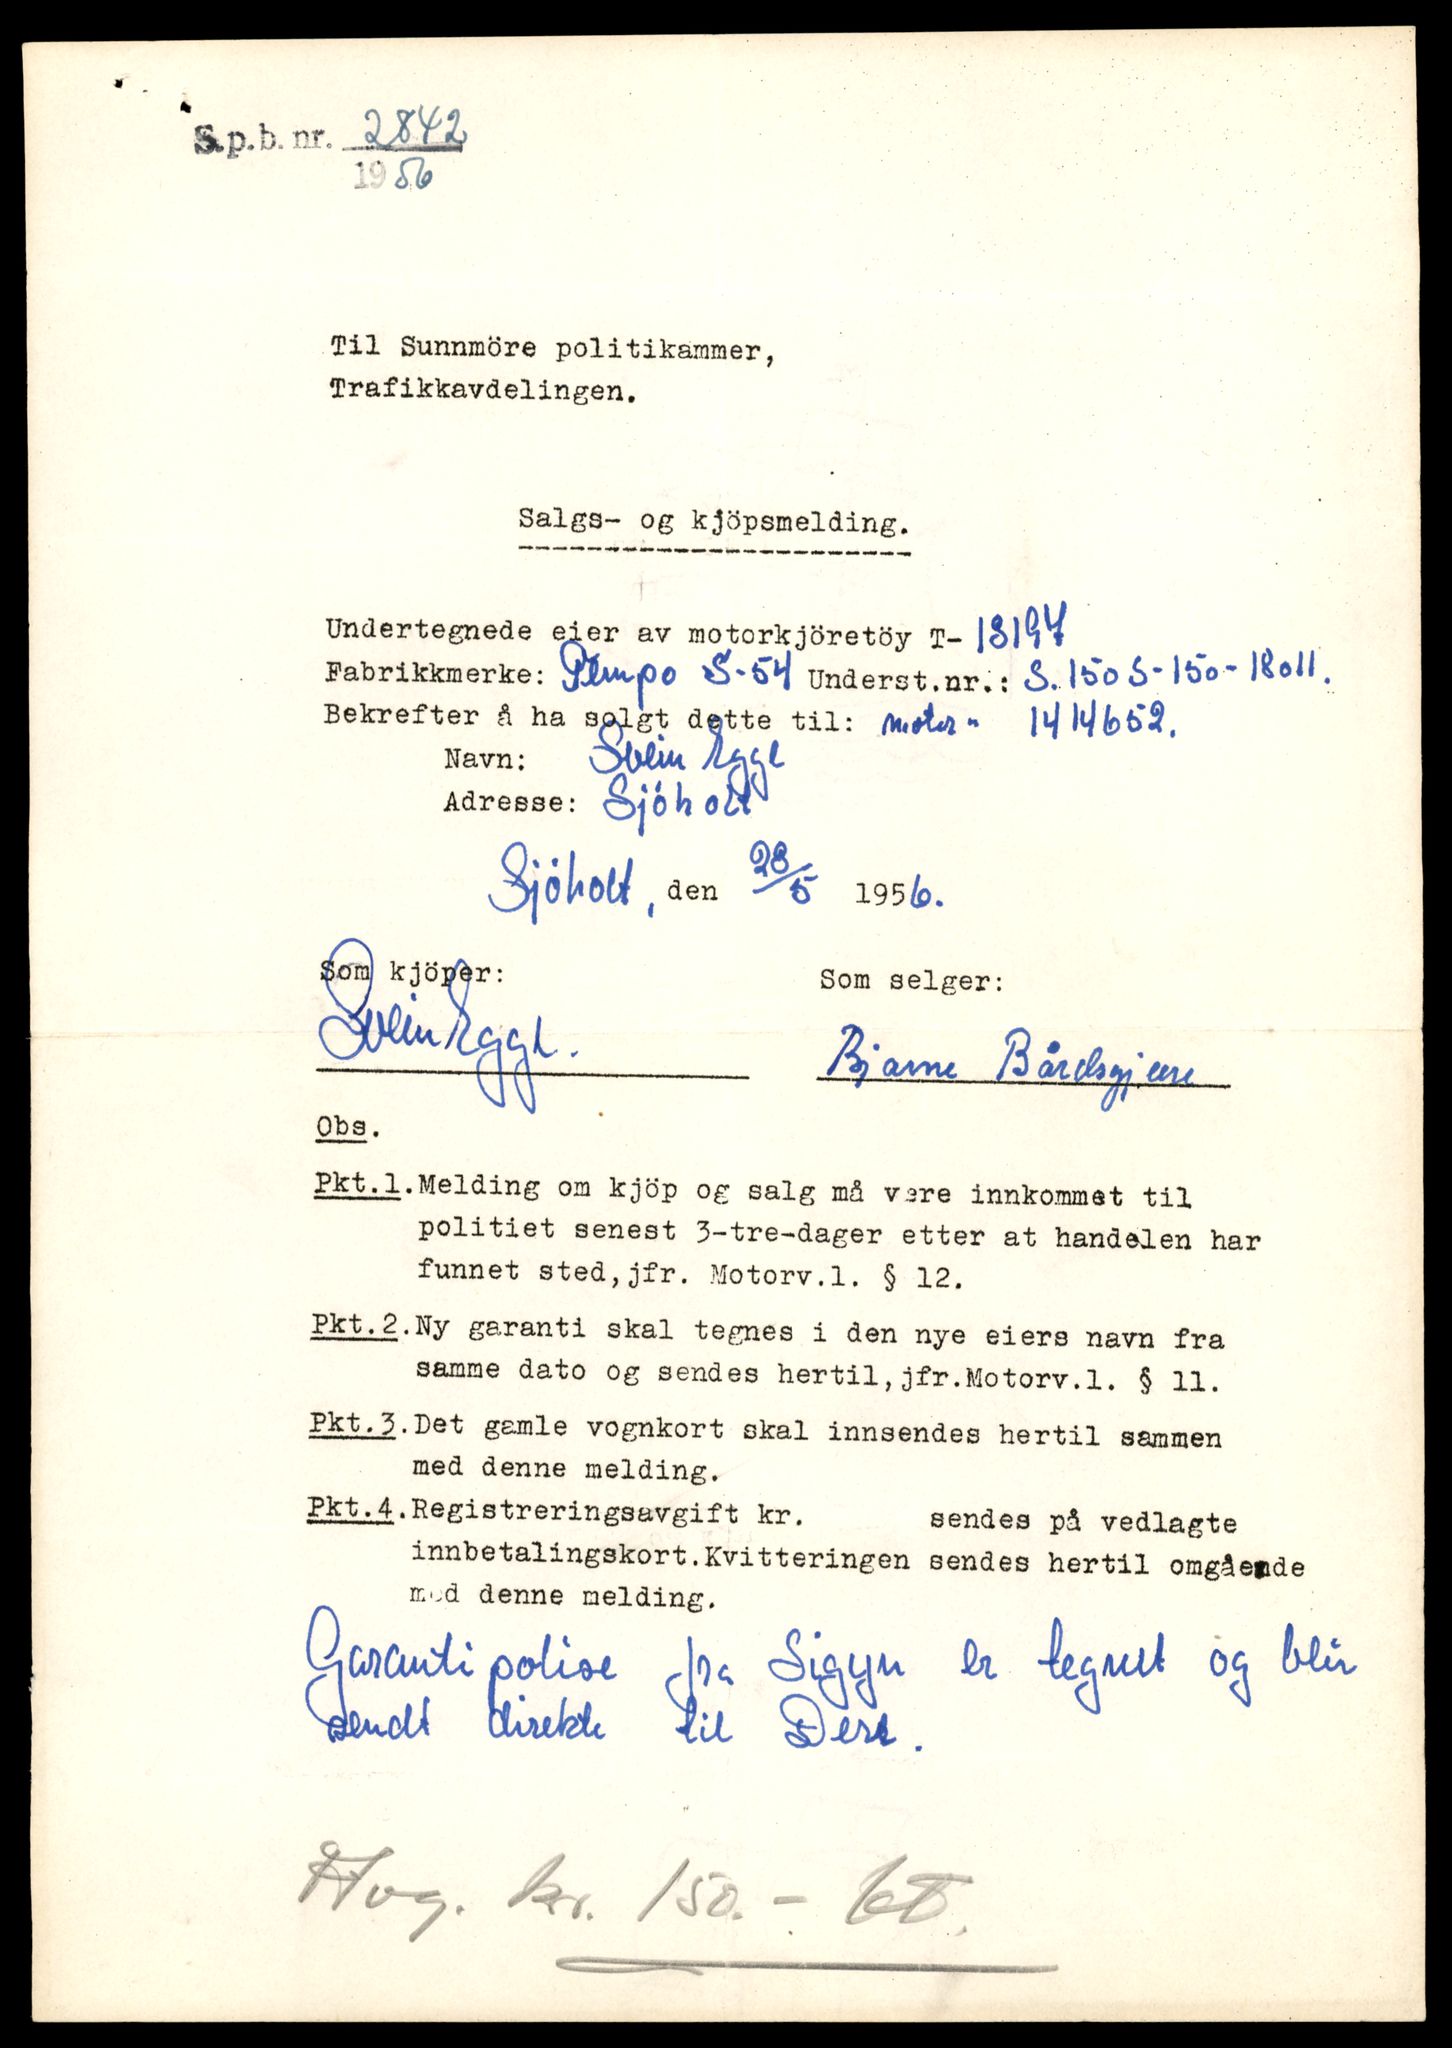 S.p.b. nr. 2842
1956
Til Sunnmöre politikammer,
Trafikkavdelingen.
Salgs- og kjöpsmelding.
Undertegnede eier av motorkjöretöy T- 13197
Fabrikkmerke: Tempo S-54 Underst.nr.: S.150 S-150-18011.
Bekrefter å ha solgt dette til: motor " 1414652.
Navn: Svein Egge
Adresse: Sjöholt
Sjöholt, den 28/5 1956.
Som kjöper: Som selger:
Svein Egge. Bjarne Bårdsgjære
Obs.
Pkt.1. Melding om kjöp og salg må være innkommet til
politiet senest 3-tre-dager etter at handelen har
funnet sted, jfr. Motorv.l. § 12.
Pkt.2. Ny garanti skal tegnes i den nye eiers navn fra
samme dato og sendes hertil, jfr.Motorv.l. § 11.
Pkt.3. Det gamle vognkort skal innsendes hertil sammen
med denne melding.
Pkt.4. Registreringsavgift kr. sendes på vedlagte
innbetalingskort.Kvitteringen sendes hertil omgående
med denne melding.
Garanti polise fra Sigyn er tegnet og blir
sendt direkte til Dere.
kr. 150.- bet.